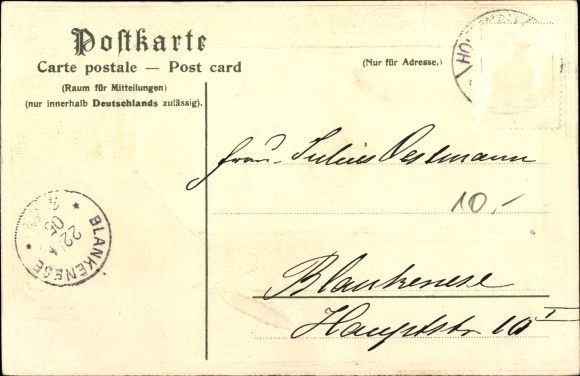 Postkarte
Carte postale — Post card
(Nur für Adresse.)
(Raum für Mitteilungen)
(nur innerhalb Deutschlands zulässig).
Frau Julius Oestmann
10,-
BLANKENESE
22.
05
Blankenese
Hauptstr 10 I